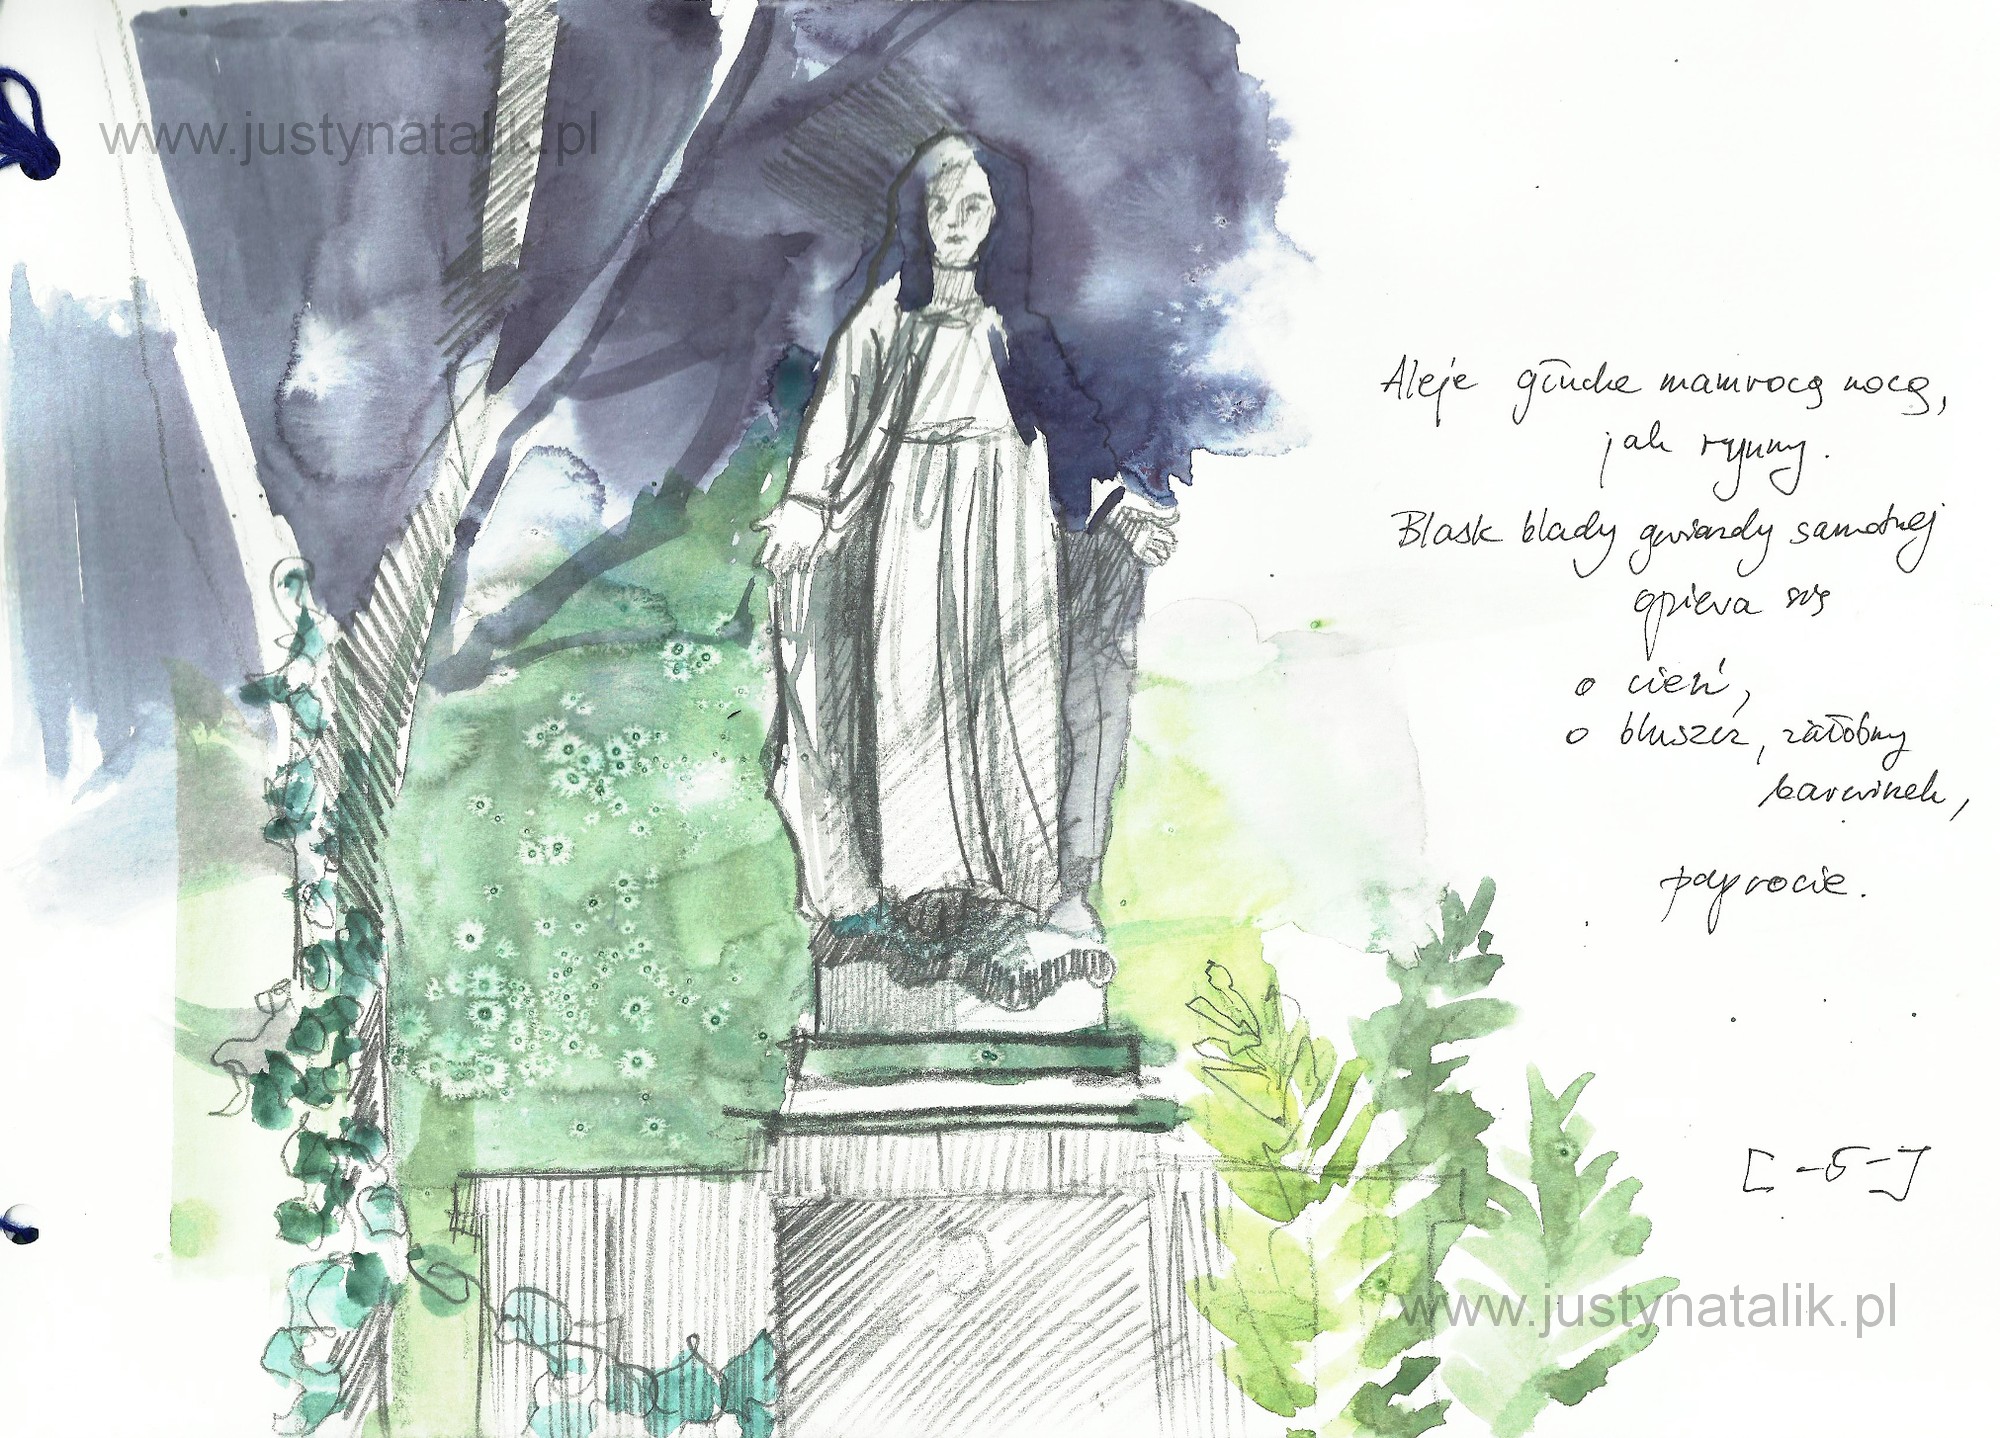 www.justynatalik.pl
Aleje głuche mamroczą nocą,
jak rynny.
Blask blady gwiazdy samotnej
opiera się
o cień,
o bluszcz, żałobny
barwinek,
paprocie.
[-5-]
www.justynatalik.pl